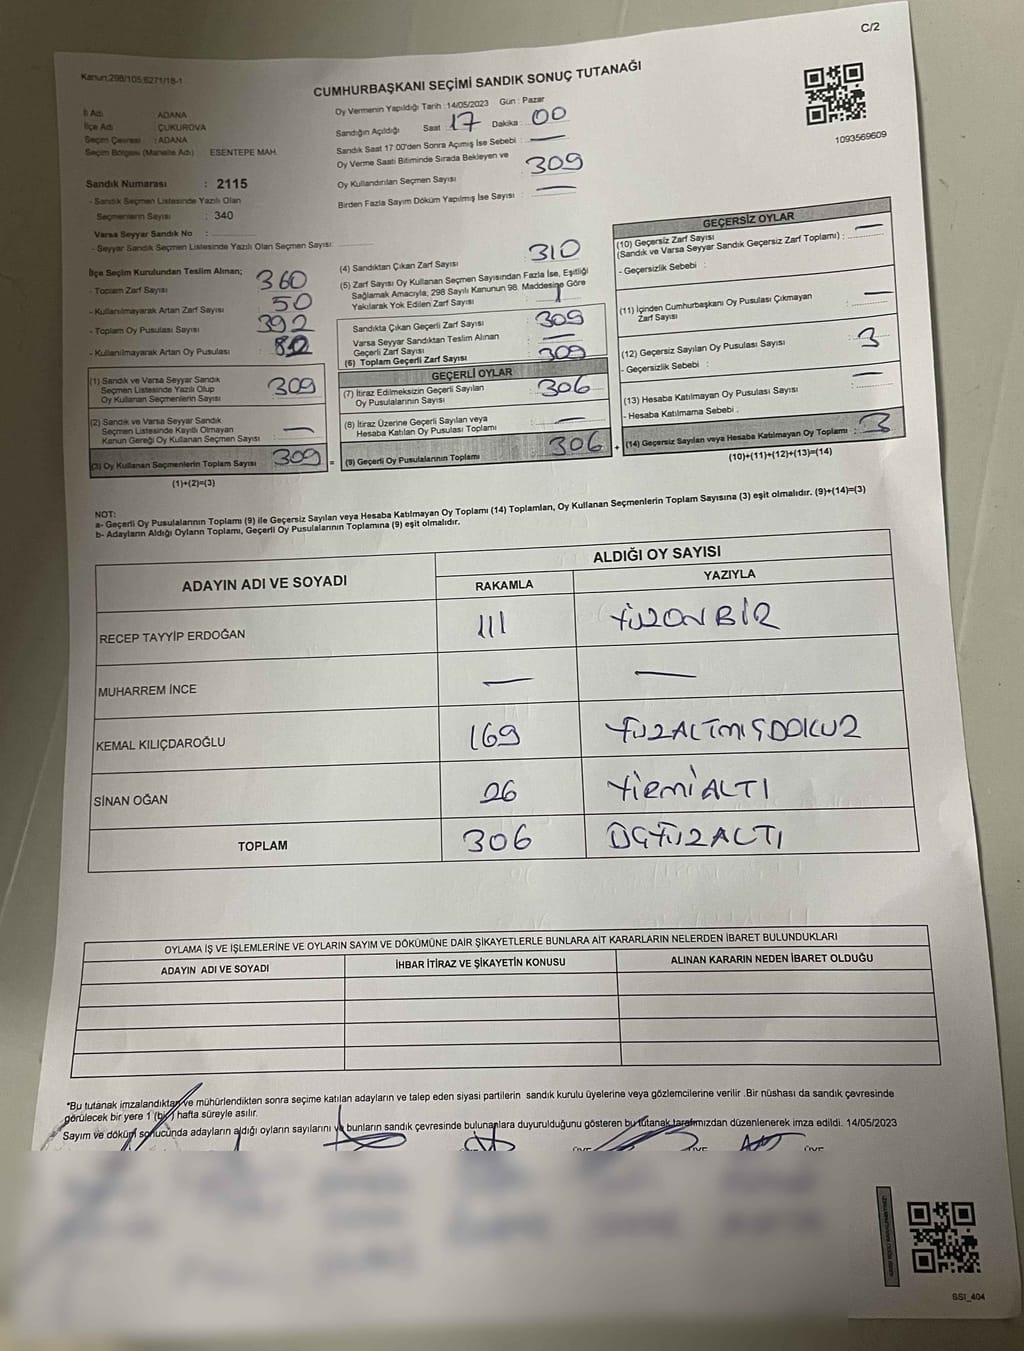 C/2
Kanun:298/105;6271/18-1
CUMHURBAŞKANI SEÇİMİ SANDIK SONUÇ TUTANAĞI
1093569609
İl Adı ADANA
İlçe Adı ÇUKUROVA
Seçim Çevresi : ADANA
Seçim Bölgesi (Mahalle Adı) ESENTEPE MAH.
Sandık Numarası : 2115
- Sandık Seçmen Listesinde Yazılı Olan
Seçmenlerin Sayısı : 340
Varsa Seyyar Sandık No :
- Seyyar Sandık Seçmen Listesinde Yazılı Olan Seçmen Sayısı:
Oy Vermenin Yapıldığı Tarih : 14/05/2023 Gün : Pazar
Sandığın Açıldığı Saat : 17 Dakika : 00
Sandık Saat 17:00'den Sonra Açımış İse Sebebi : —
Oy Verme Saati Bitiminde Sırada Bekleyen ve
Oy Kullandırılan Seçmen Sayısı : 309
Birden Fazla Sayım Döküm Yapılmış İse Sayısı : —
İlçe Seçim Kurulundan Teslim Alınan;
- Toplam Zarf Sayısı : 360
- Kullanılmayarak Artan Zarf Sayısı : 50
- Toplam Oy Pusulası Sayısı : 392
- Kullanılmayarak Artan Oy Pusulası :
(1) Sandık ve Varsa Seyyar Sandık
Seçmen Listesinde Yazılı Olup
Oy Kullanan Seçmenlerin Sayısı : 309
(2) Sandık ve Varsa Seyyar Sandık
Seçmen Listesinde Kayıtlı Olmayan
Kanun Gereği Oy Kullanan Seçmen Sayısı : —
(3) Oy Kullanan Seçmenlerin Toplam Sayısı : 309 =
(1)+(2)=(3)
(4) Sandıktan Çıkan Zarf Sayısı : 310
(5) Zarf Sayısı Oy Kullanan Seçmen Sayısından Fazla İse, Eşitliği
Sağlamak Amacıyla, 298 Sayılı Kanunun 98. Maddesine Göre
Yakılarak Yok Edilen Zarf Sayısı : 1
Sandıkta Çıkan Geçerli Zarf Sayısı : 309
Varsa Seyyar Sandıktan Teslim Alınan
Geçerli Zarf Sayısı : —
(6) Toplam Geçerli Zarf Sayısı : 309
GEÇERLİ OYLAR
(7) İtiraz Edilmeksizin Geçerli Sayılan
Oy Pusulalarının Sayısı : 306
(8) İtiraz Üzerine Geçerli Sayılan veya
Hesaba Katılan Oy Pusulası Toplamı : —
(9) Geçerli Oy Pusulalarının Toplamı : 306 +
GEÇERSİZ OYLAR
(10) Geçersiz Zarf Sayısı
(Sandık ve Varsa Seyyar Sandık Geçersiz Zarf Toplamı) : —
- Geçersizlik Sebebi :
(11) İçinden Cumhurbaşkanı Oy Pusulası Çıkmayan
Zarf Sayısı : —
(12) Geçersiz Sayılan Oy Pusulası Sayısı : 3
- Geçersizlik Sebebi :
(13) Hesaba Katılmayan Oy Pusulası Sayısı : —
- Hesaba Katılmama Sebebi :
(14) Geçersiz Sayılan veya Hesaba Katılmayan Oy Toplamı : 3
(10)+(11)+(12)+(13)=(14)
NOT:
a- Geçerli Oy Pusulalarının Toplamı (9) ile Geçersiz Sayılan veya Hesaba Katılmayan Oy Toplamı (14) Toplamları, Oy Kullanan Seçmenlerin Toplam Sayısına (3) eşit olmalıdır. (9)+(14)=(3)
b- Adayların Aldığı Oyların Toplamı, Geçerli Oy Pusulalarının Toplamına (9) eşit olmalıdır.
ADAYIN ADI VE SOYADI ALDIĞI OY SAYISI
RAKAMLA YAZIYLA
RECEP TAYYİP ERDOĞAN 111 YÜZONBİR
MUHARREM İNCE — —
KEMAL KILIÇDAROĞLU 169 YÜZALTMIŞDOKUZ
SİNAN OĞAN 26 YİRMİALTI
TOPLAM 306 ÜÇYÜZALTI
OYLAMA İŞ VE İŞLEMLERİNE VE OYLARIN SAYIM VE DÖKÜMÜNE DAİR ŞİKAYETLERLE BUNLARA AİT KARARLARIN NELERDEN İBARET BULUNDUKLARI
ADAYIN ADI VE SOYADI İHBAR İTİRAZ VE ŞİKAYETİN KONUSU ALINAN KARARIN NEDEN İBARET OLDUĞU
*Bu tutanak imzalandıktan ve mühürlendikten sonra seçime katılan adayların ve talep eden siyasi partilerin sandık kurulu üyelerine veya gözlemcilerine verilir .Bir nüshası da sandık çevresinde
görülecek bir yere 1 (bir) hafta süreyle asılır.
Sayım ve döküm sonucunda adayların aldığı oyların sayılarını ve bunların sandık çevresinde bulunanlara duyurulduğunu gösteren bu tutanak tarafımızdan düzenlenerek imza edildi. 14/05/2023
SSI_404